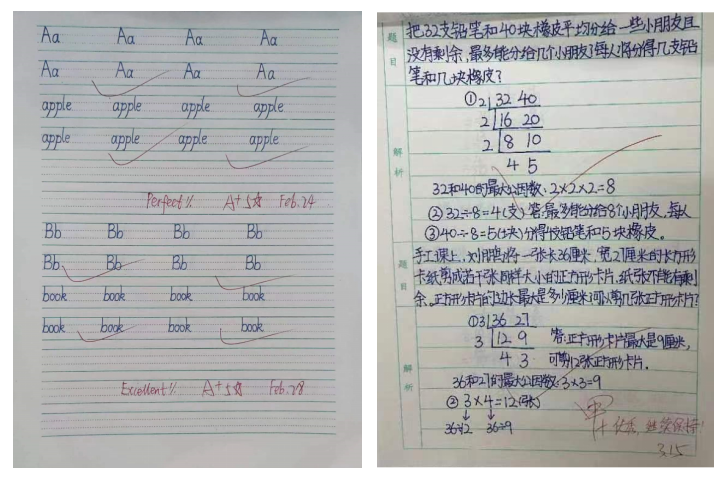 Aa Aa Aa Aa
Aa Aa Aa Aa
apple apple apple apple
apple apple apple apple
Perfect!! A+5☆ Feb.24
Bb Bb Bb Bb
Bb Bb Bb Bb
book book book book
book book book book
Excellent!! A+5☆ Feb.28
题目
把32支铅笔和40块橡皮平均分给一些小朋友且
没有剩余,最多能分给几个小朋友?每人将分得几支铅
笔和几块橡皮?
解析
①2 32 40
2 16 20
2 8 10
4 5
32和40的最大公因数:2×2×2=8
②32÷8=4(支) 答:最多能分给8个小朋友,每人
③40÷8=5(块) 分得4支铅笔和5块橡皮。
题目
手工课上,刘鹏将一张长36厘米,宽27厘米的长方形
卡纸剪成若干张同样大小的正方形卡片,纸张不能有剩
余。正方形卡片的边长最大是多少厘米?可以剪几张正方形卡片?
解析
①3 36 27
3 12 9 答:正方形卡片最大是9厘米,
4 3 可剪12张正方形卡片.
36和27的最大公因数:3×3=9
②3×4=12(张)
优秀,继续保持!
3.15